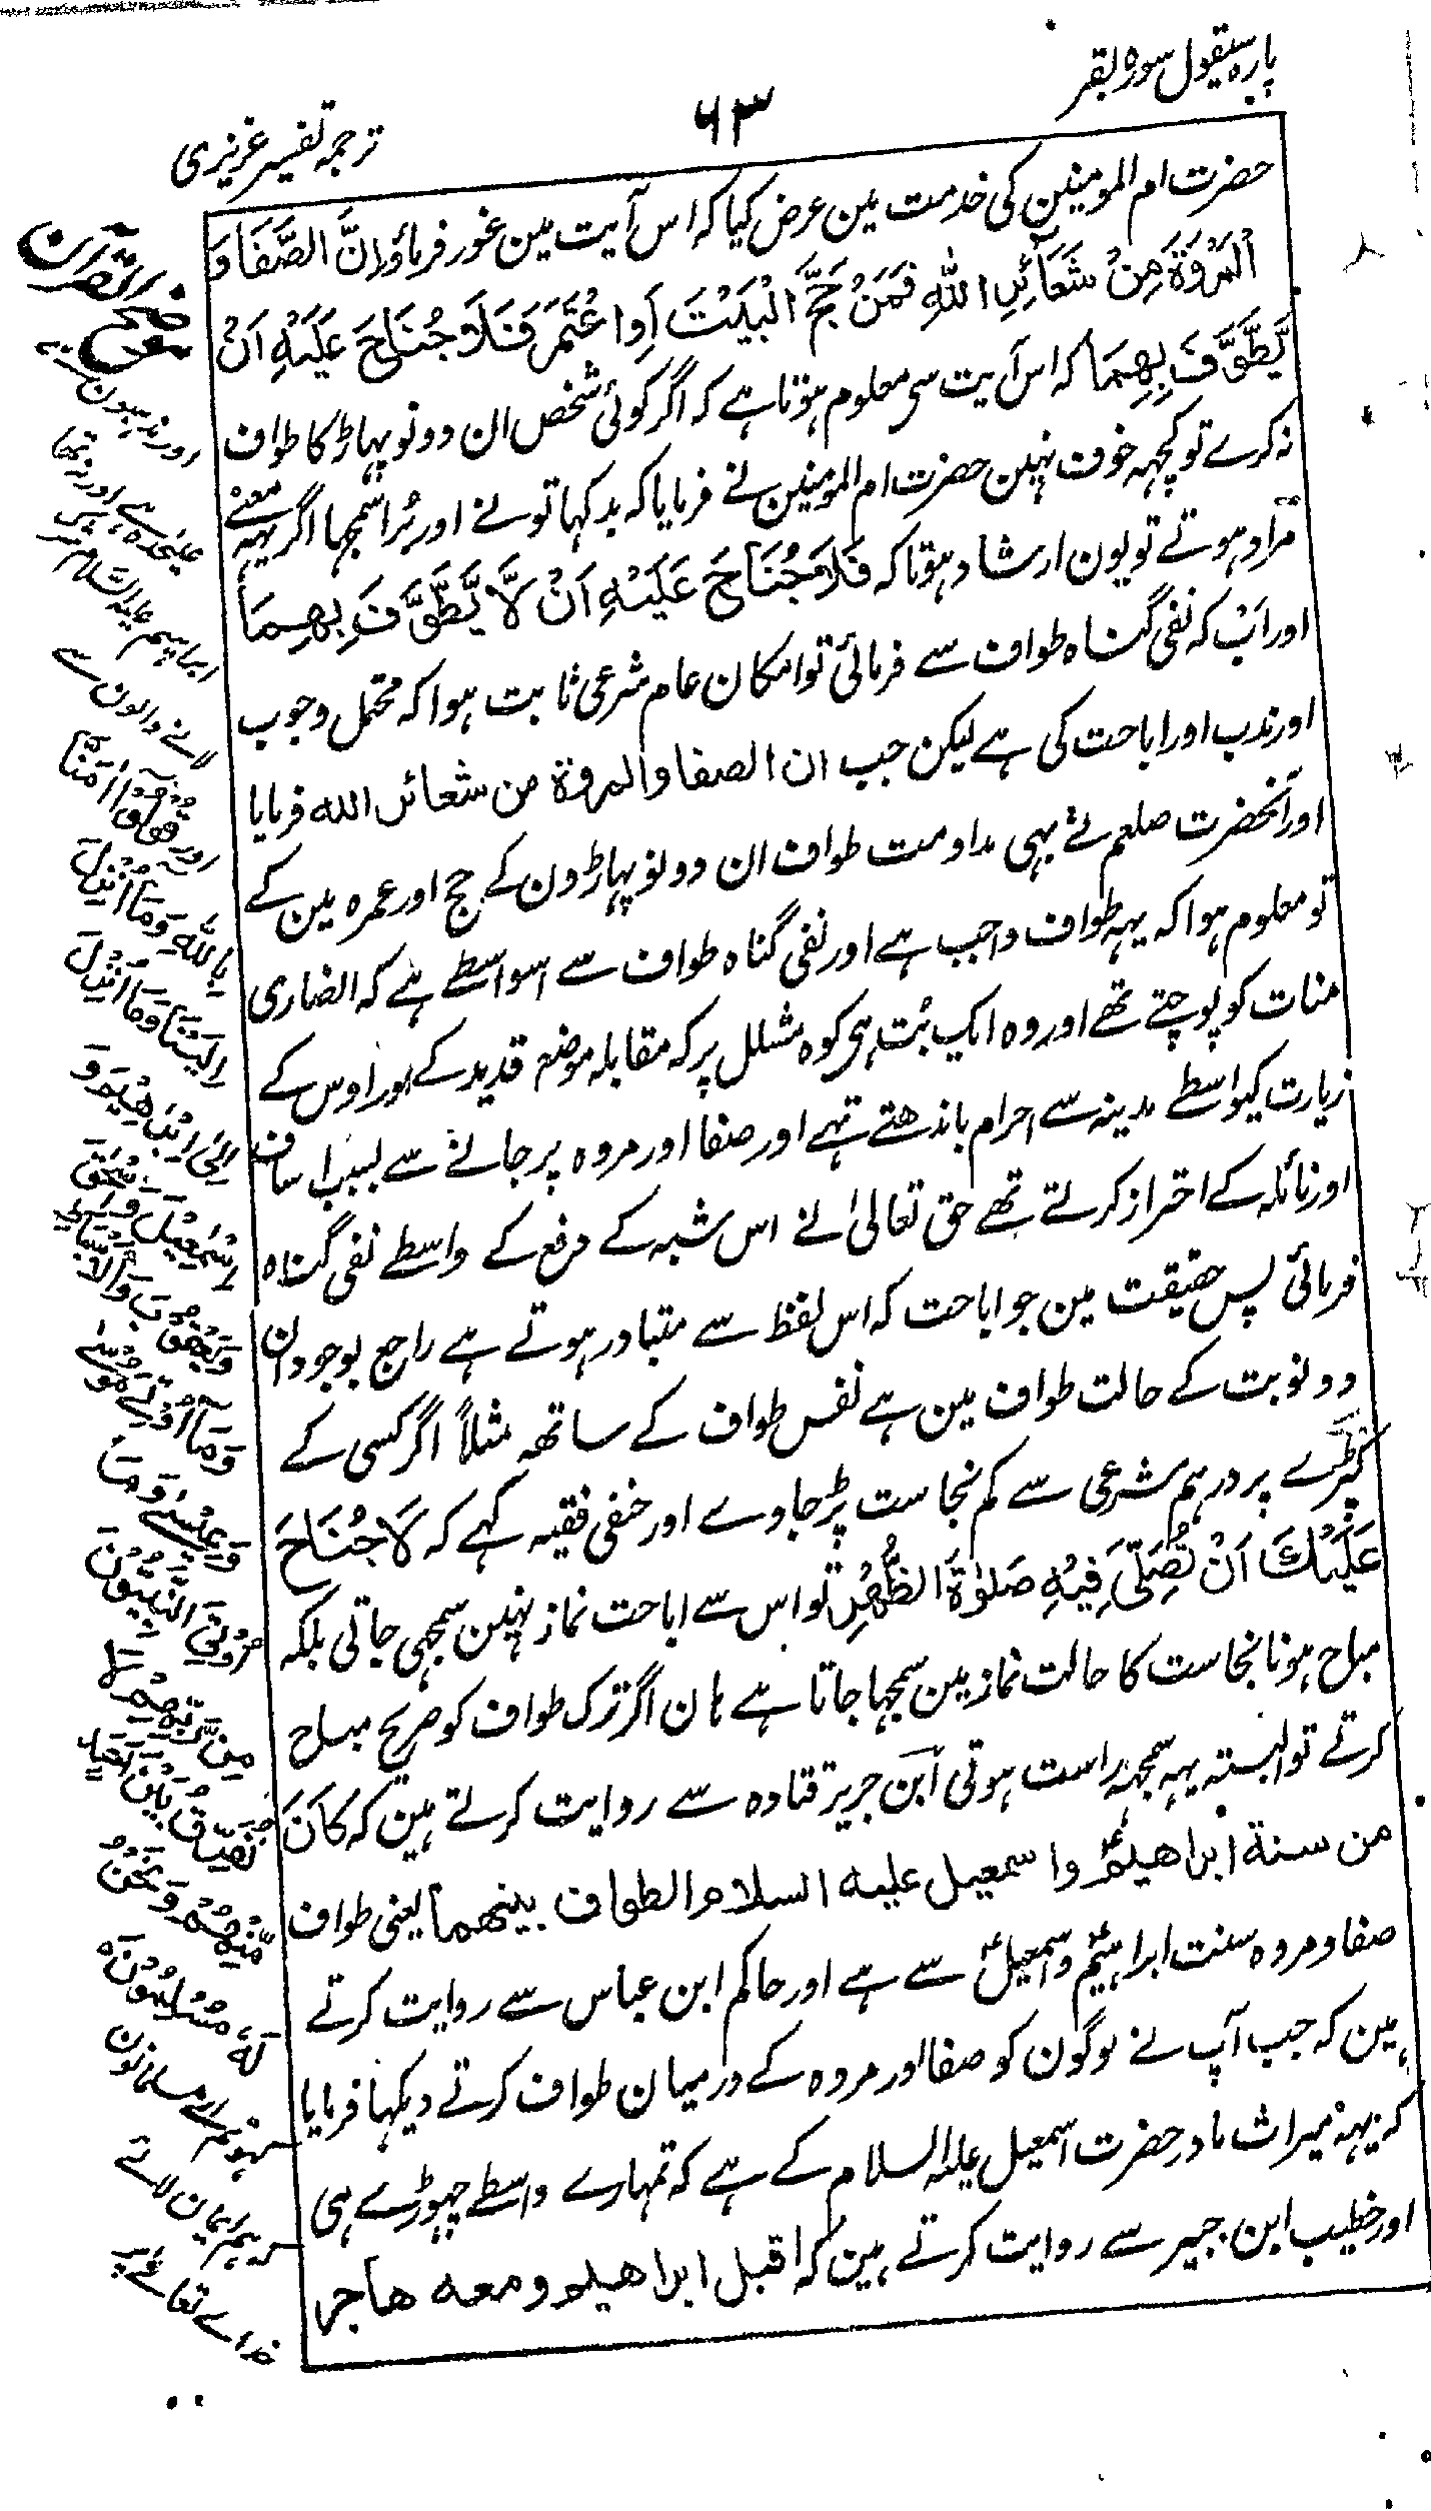 پارہ سیقول سورہ بقر
۶۳
ترجمہ تفسیر عزیزی
حضرت ام المومنین کی خدمت مین عرض کیا کہ اس آیت مین غور فرماؤ اِنَّ الصَّفَا وَ
الْمَرْوَةَ مِنْ شَعَآئِرِ اللّٰهِ فَمَنْ حَجَّ الْبَيْتَ اَوِ اعْتَمَرَ فَلَا جُنَاحَ عَلَيْهِ اَنْ
يَّطَّوَّفَ بِهِمَا کہ اس آیت سی معلوم ہوتا ہے کہ اگر کوئی شخص ان دونو پہاڑ کا طواف
نہ کرے تو کچہہ خوف نہین حضرت ام المومنین نے فرمایا کہ بد کہا تو نے اور بُرا سمجہا اگر یہہ معنے
مراد ہوتے تو یون ارشاد ہوتا کہ فَلَا جُنَاحَ عَلَيْهِ اَنْ لَّا يَطَّوَّفَ بِهِمَا
اور اَب کہ نفی گناہ طواف سے فرمائی تو امکان عام شرعی ثابت ہوا کہ محتمل وجوب
اور ندب اور اباحت کی ہے لیکن جب ان الصفا والمروة من شعائر الله فرمایا
اور آنحضرت صلعم نے بہی مداومت طواف ان دونو پہاڑون کے حج اور عمرہ مین کے
تو معلوم ہوا کہ یہہ طواف واجب ہے اور نفی گناہ طواف سے اسواسطے ہے کہ انصاری
منات کو پوجتے تھے اور وہ ایک بُت ہی کوہ مشلل پر کہ مقابلہ موضع قدید کے ہو اور اوس کے
زیارت کیواسطے مدینہ سے احرام باندھتے تہے اور صفا اور مروہ پر جانے سے بسبب اساف
اور نائلہ کے احتراز کرتے تھے حق تعالیٰ نے اس شبہ کے دفع کے واسطے نفی گناہ
فرمائی پس حقیقت مین جو اباحت کہ اس لفظ سے متبادر ہوتے ہے راجع بوجود ان
دونو بت کے حالت طواف مین ہے نفس طواف کے ساتھہ مثلاً اگر کسی کے
کپڑے پر درہم شرعی سے کم نجاست پڑ جاوے اور حنفی فقیہ کہے کہ لَا جُنَاحَ
عَلَيْكَ اَنْ تُصَلِّیَ فِيْهِ صَلٰوةَ الظُّهْرِ تو اس سے اباحت نماز نہین سمجہی جاتی بلکہ
مباح ہونا نجاست کا حالت نماز مین سمجہا جاتا ہے ہان اگر ترک طواف کو صریح مباح
کرتے تو البتہ یہہ سمجہہ راست ہوتی ابن جریر قتادہ سے روایت کرتے ہین کہ كَانَ
من سنة ابراهیم واسمعیل علیه السلام الطواف بینهما یعنی طواف
صفا و مروہ سنت ابراہیمؑ و اسمعیلؑ سے ہے اور حاکم ابن عباس سے روایت کرتے
ہین کہ جب آپ نے لوگون کو صفا اور مروہ کے درمیان طواف کرتے دیکہا فرمایا
کہ یہہ میراث مادر حضرت اسمعیل علیہ السلام کے ہے کہ تمہارے واسطے چہوڑے ہی
اور خطیب ابن جبیر سے روایت کرتے ہین کہ اقبل ابراهیم ومعه هاجر
موضح القرآن
علیحدہ ہے اور نہ تہا
ابراہیم علیہ السلام
لانے والون سے
قُوْلُوْآ اٰمَنَّا
بِاللّٰهِ وَمَآ اُنْزِلَ
اِلَيْنَا وَمَآ اُنْزِلَ
اِلٰٓى اِبْرٰهِيْمَ وَ
اِسْمٰعِيْلَ وَاِسْحٰقَ
وَيَعْقُوْبَ وَالْاَسْبَاطِ
وَمَآ اُوْتِيَ مُوْسٰى
وَعِيْسٰى وَمَآ
اُوْتِيَ النَّبِيُّوْنَ
مِنْ رَّبِّهِمْ لَا
نُفَرِّقُ بَيْنَ اَحَدٍ
مِّنْهُمْ وَنَحْنُ
لَهٗ مُسْلِمُوْنَ
کہو تم اے مسلمانون
کہ ہم ایمان لائے
خداے تعالے پر